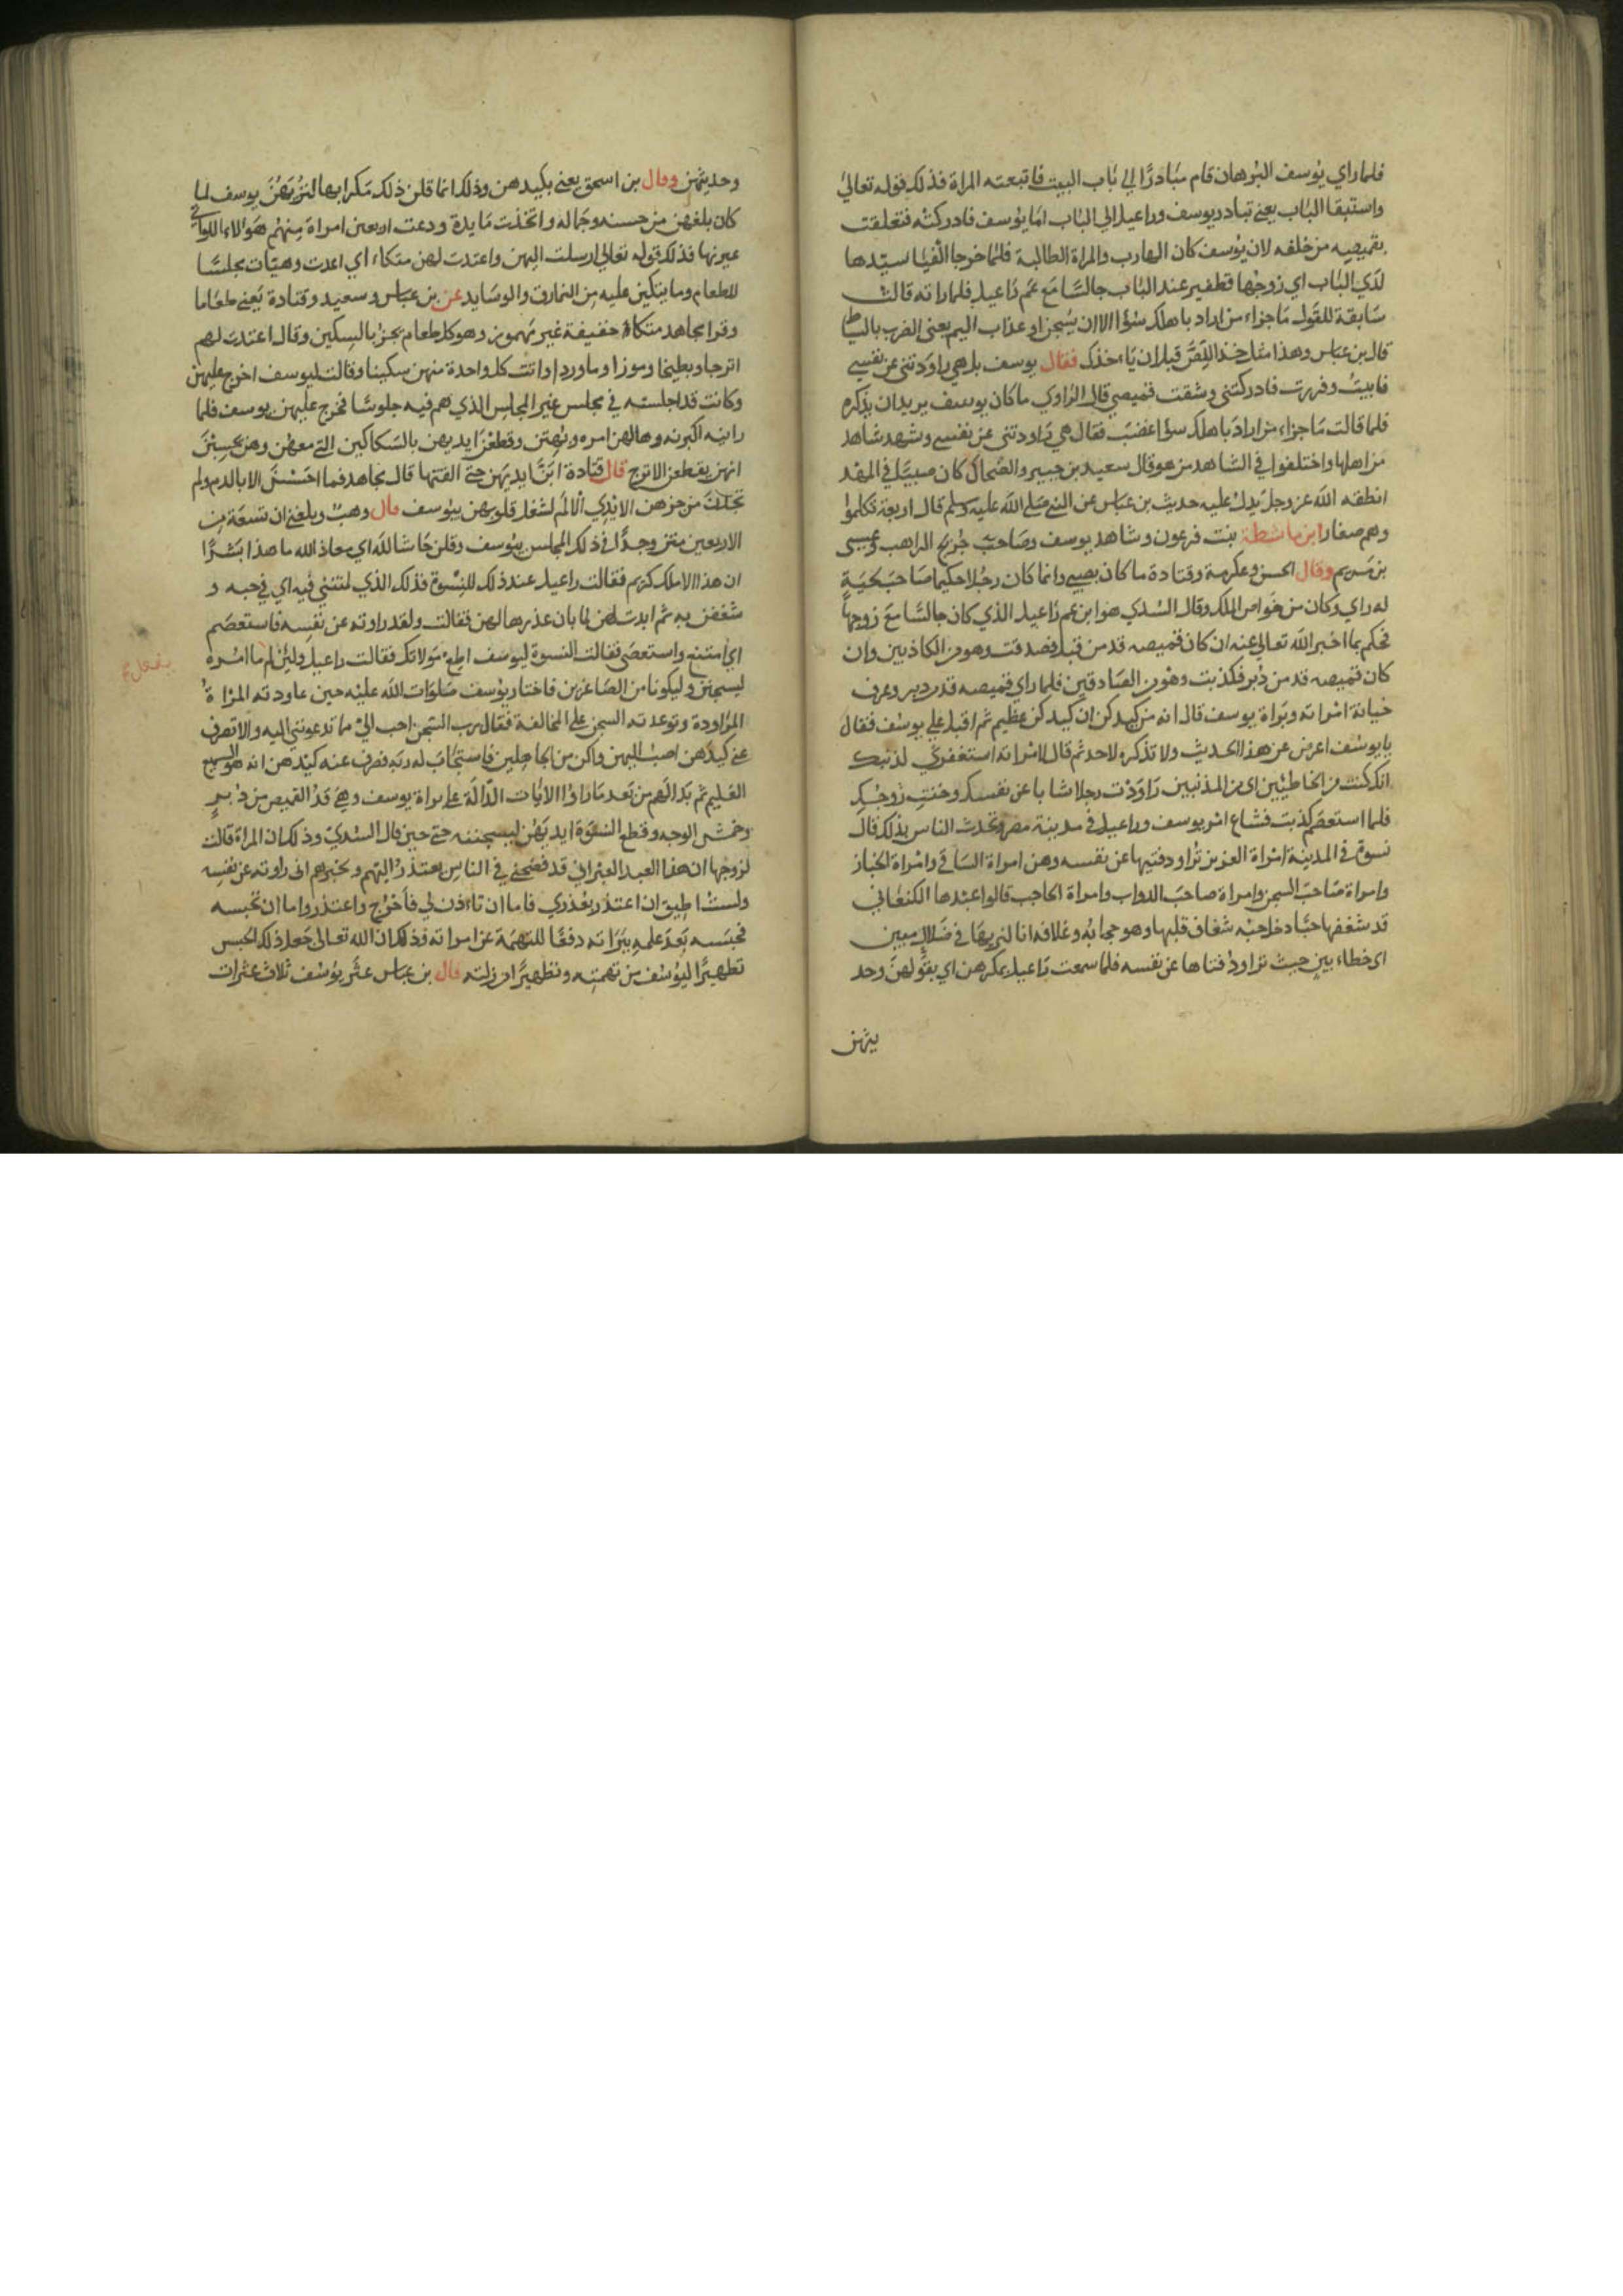 فلما راي يوسف البرهان قام مبادرًا الي باب البيت فاتبعته المراة فذلك قوله تعالي
واستبقا الباب يعني تبادر يوسف وراعيل الي الباب اما يوسف فادركته فتعلقت
بقميصه من خلفه لان يوسف كان الهارب والمراة الطالبة فلما خرجا الفيا سيدها
لدي الباب اي زوجها قطفير عند الباب جالسًا مع عم راعيل فلما راته قالت
سابقة للقول ما جزاء من اراد باهلك سؤا الا ان يسجن او عذاب اليم يعني الضرب بالسياط
قال بن عباس وهذا مثل خذ اللص قبل ان ياءخذك فقال يوسف بل هي راودتني عن نفسي
فابيت وفررت فادركتني وشقت قميصي قال الراوي ما كان يوسف يريد ان يذكره
فلما قالت ما جزاء من اراد باهلك سؤا غضب فقال هي راودتني عن نفسي وشهد شاهد
من اهلها واختلفوا في الشاهد من هو قال سعيد بن جبير والضحاك كان صبيًا في المهد
انطقه الله عز وجل يدل عليه حديث بن عباس عن النبي صلي الله عليه وسلم قال اربعة تكلموا
وهم صغار ابن ماشطة بنت فرعون وشاهد يوسف وصاحب جريج الراهب وعيسى
بن مريم وقال الحسن وعكرمة وقتادة ما كان بصبي وانما كان رجلا حكيما صاحب لحية
له راي وكان من خواص الملك وقال السدي هو ابن عم راعيل الذي كان جالسًا مع زوجها
فحكم بما اخبر الله تعالي عنه ان كان قميصه قد من قبل فصدقت وهو من الكاذبين وان
كان قميصه قد من دبر فكذبت وهو من الصادقين فلما راي قميصه قد من دبر وعرف
خيانة امراته وبراة يوسف قال انه من كيدكن ان كيدكن عظيم ثم اقبل علي يوسف فقال
يا يوسف اعرض عن هذا الحديث ولا تذكره لاحد ثم قال لامراته استغفري لذنبك
انك كنت من الخاطئين اي من المذنبين راودت رجلا شابا عن نفسك وخنت زوجك
فلما استعصم كذبت فشاع امر يوسف وراعيل في مدينة مصر وتحدث الناس بذلك قال
نسوة في المدينة امراة العزيز تراود فتيها عن نفسه وهن امراة الساقي وامراة الخباز
وامراة صاحب السجن وامراة صاحب الدواب وامراة الحاجب قالوا عبدها الكنعاني
قد شغفها حبًا دخل حبه شغاف قلبها وهو حجابه وغلافه انا لنريها في ضلال مبين
اي خطاء بين حيث تراود فتاها عن نفسه فلما سمعت راعيل بمكرهن اي بقولهن وحد
يثهن
وحديثهن وقال بن اسحق يعني بكيدهن وذلك انما قلن ذلك مكرا بها لتريهن يوسف لما
كان بلغهن من حسنه وجماله واتخذت مايدة ودعت اربعين امراة منهم هؤلاء اللواتي
عيرنها فذلك قوله تعالي ارسلت اليهن واعتدت لهن متكاء اي اعدت وهيات مجلسًا
للطعام وما يتكين عليه من النمارق والوسايد عن بن عباس وسعيد وقتادة يعني طعاما
وقرا مجاهد متكاة خفيفة غير مهموز وهو كل طعام يجز بالسكين وقال اعتدت لهم
اترجا وبطيخا وموزا وماوردا واتت كل واحدة منهن سكينا وقالت ليوسف اخرج عليهن
وكانت قد اجلسته في مجلس غير المجلس الذي هم فيه جلوسًا فخرج عليهن يوسف فلما
راينه اكبرنه وهالهن امره وبهتن وقطعن ايديهن بالسكاكين التي معهن وهن يحسبن
انهن يقطعن الاترج قال قتادة ابنّ ايديهن حتي القتها قال مجاهد فما احسسن الا بالدم ولم
تجدن من حزهن الايدي الالم لشغل قلوبهن بيوسف قال وهب وبلغني ان تسعة من
الاربعين متن وجدًا في ذلك المجلس بيوسف وقلن حاشا لله اي معاذ الله ما هذا بشرًا
ان هذا الا ملك كريم فقالت راعيل عند ذلك للنسوة فذلك الذي لمتنني فيه اي في حبه و
شغفن به ثم ابدت لهن لما بان عذرها لهن فقالت ولقد راودته عن نفسه فاستعصم
اي امتنع واستعصى فقالت النسوة ليوسف اطع مولاتك فقالت راعيل ولئن لم ما امره
ليسجنن وليكونا من الصاغرين فاختار يوسف صلوات الله عليه حين عاودته المراة
المراودة وتوعدته السجن علي المخالفة فقال رب السجن احب الي مما تدعونني اليه والا تصرف
عني كيدهن اصب اليهن واكن من الجاهلين فاستجاب له ربه فصرف عنه كيدهن انه هو السميع
العليم ثم بدا لهم من بعد ما راوا الايات الدالة علي براة يوسف وهي قد القميص من دبر
وخمش الوجه وقطع النسوة ايديهن ليسجننه حتي حين قال السدي وذلك ان المراة قالت
لزوجها ان هذا العبد العبراني قد فضحني في الناس يعتذر اليهم ويخبرهم اني راودته عن نفسه
ولست اطيق ان اعتذر بعذري فاما ان تاءذن لي فأخرج واعتذر واما ان تحبسه
فحبسه بعد علمه ببراته دفعًا للتهمة عن امراته فذلك ان الله تعالى جعل ذلك الحبس
تطهيرًا ليوسف من تهمته وتطهيرًا من زلته قال بن عباس عثر يوسف ثلاث عثرات